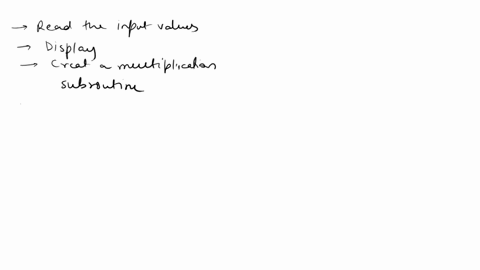 → Read the input values
→ Display
→ Creat a multiplication
subroutine